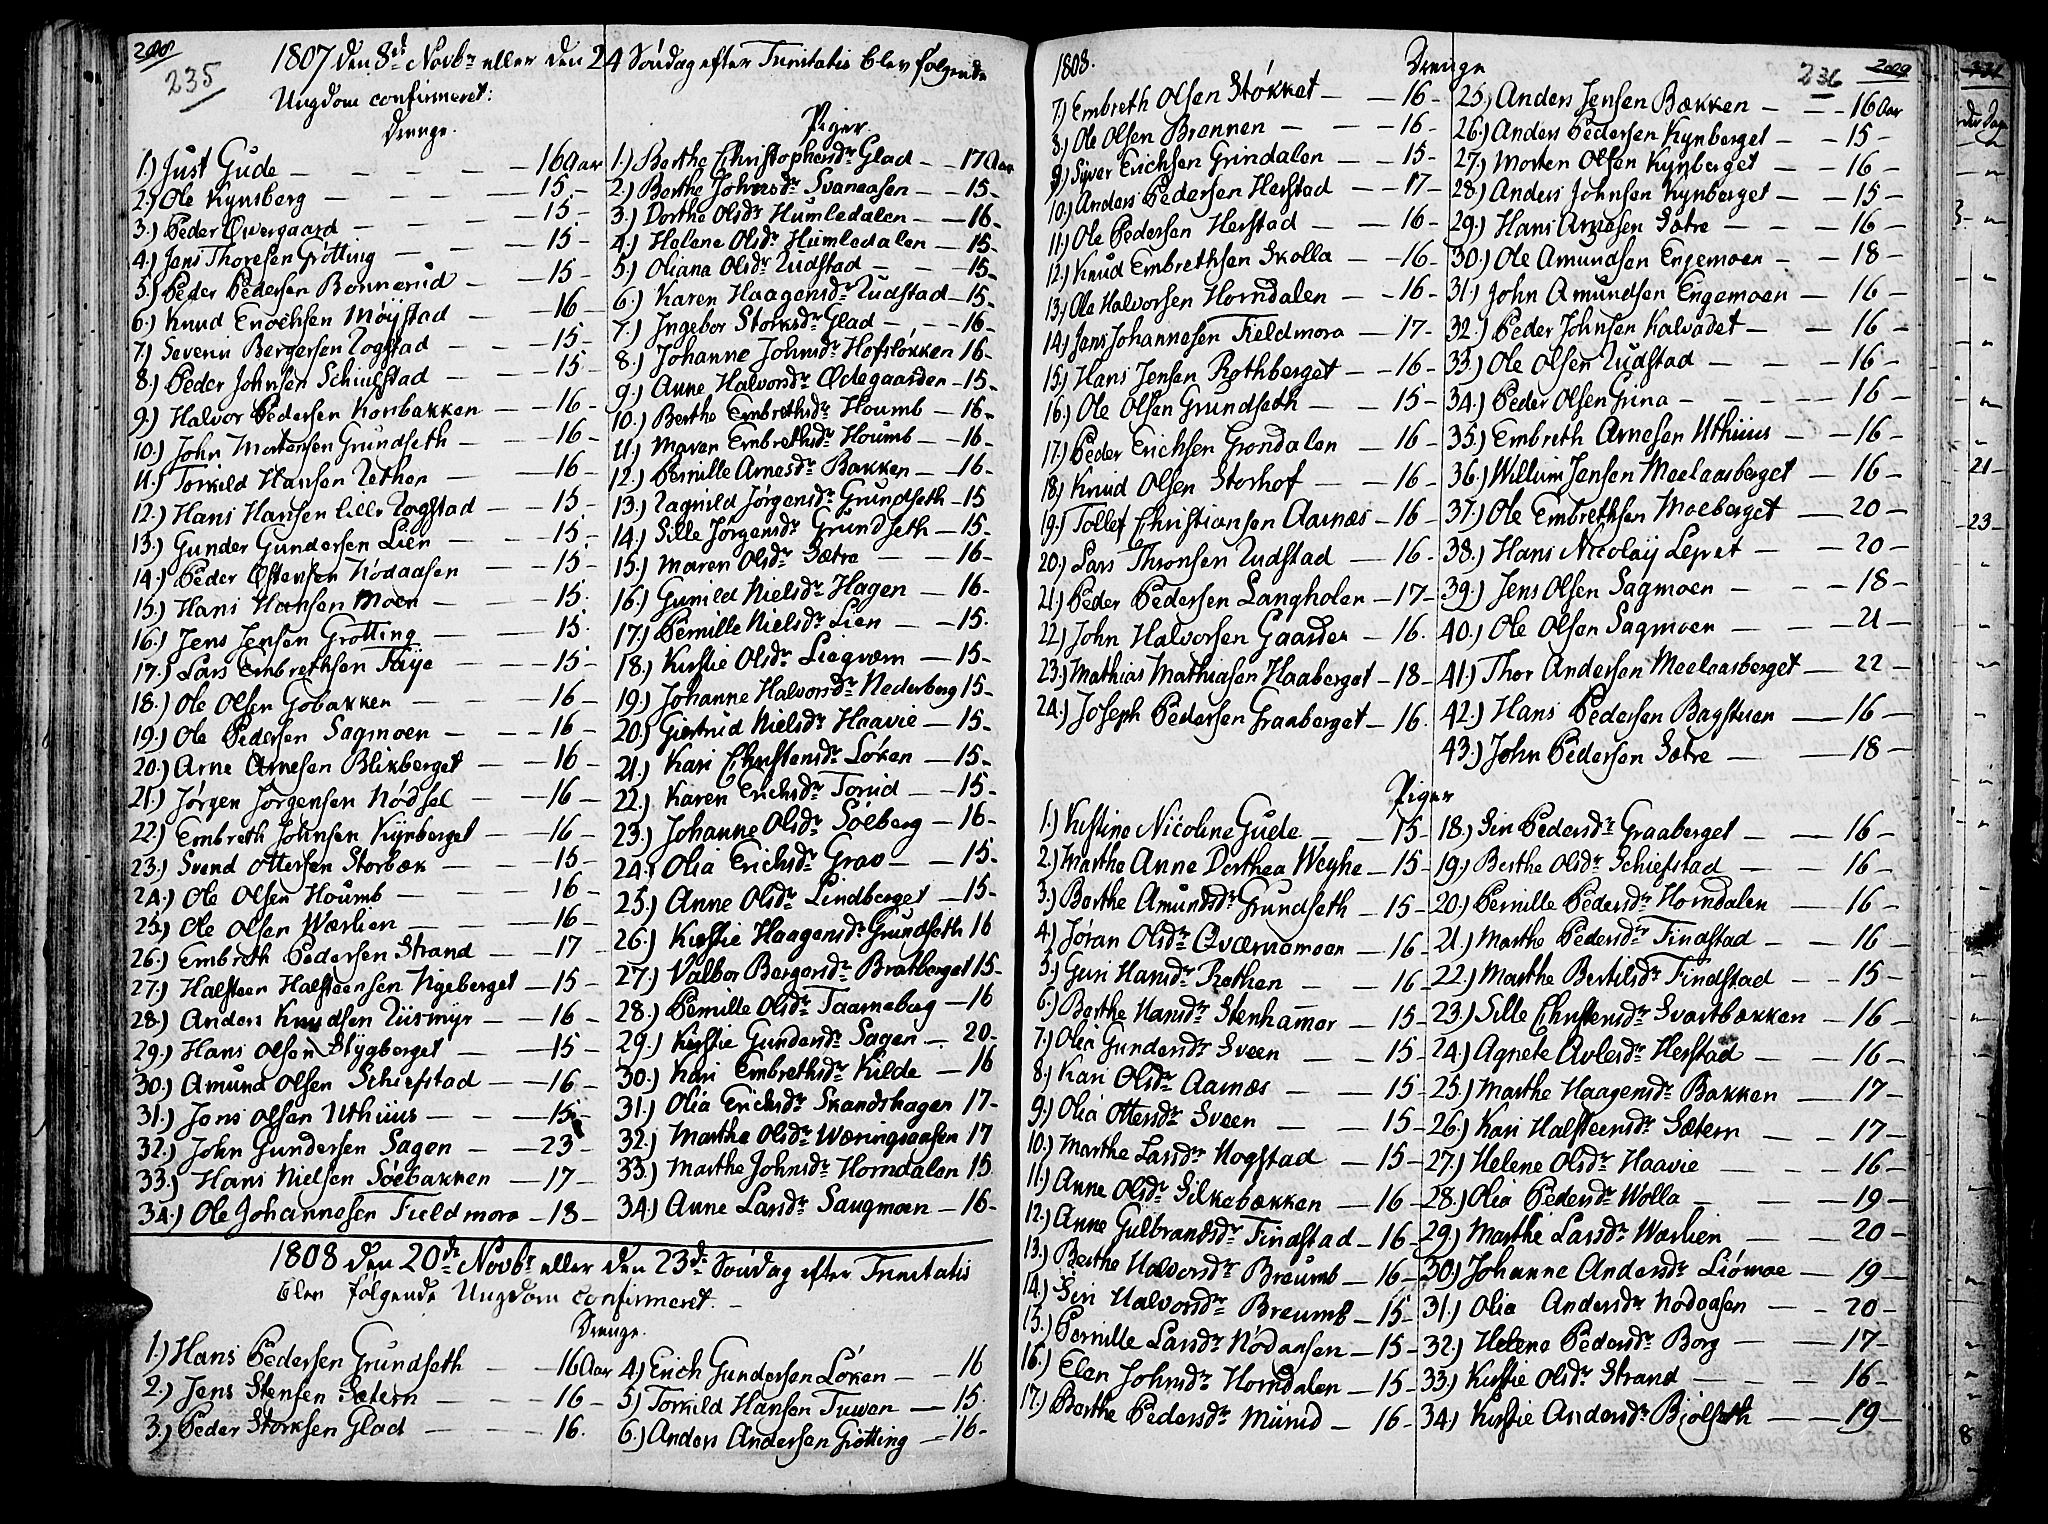 235
1807 den 8de Novbr eller den 24 Søndag efter Trinitatis blev følgende
Ungdom confirmeret:
Drenge.
1.) Just Gude — 16 Aar
2.) Ole Kynsberg — 15 -
3.) Peder Øvergaard — 15 -
4.) Jens Thoresen Grøtting — 15 -
5.) Peder Pedersen Bonnerud — 15 -
6.) Knud Enochsen Møystad — 16 -
7.) Severin Bergersen Rogstad — 15 -
8.) Peder Johnsen Schiufstad — 15 -
9.) Halvor Pedersen Kornbakken — 16 -
10.) John Mortensen Grundseth — 16 -
11.) Torkild Hansen Rethen — 16 -
12.) Hans Hansen lille Rogstad — 15 -
13.) Gunder Gundersen Lien — 15 -
14.) Peder Østensen Nødaasen — 15 -
15.) Hans Hansen Moen — 15.
16.) Jens Jensen Grøtting — 15.
17.) Lars Embrethsen Faye — 15 -
18.) Ole Olsen Gobakken — 16 -
19.) Ole Pedersen Sagmoen — 16 -
20.) Arne Arnesen Blikberget — 16 -
21.) Jørgen Jørgensen Nødsel — 16 -
22.) Embreth Johnsen Kynberget — 16 -
23.) Svend Ottersen Storbæk — 15 -
24.) Ole Olsen Houmb — 16 -
25.) Ole Olsen Wærlien — 16 -
26.) Embreth Pedersen Strand — 17 -
27.) Halsteen Halsteensen Nyeberget — 15 -
28.) Anders Knudsen Riismyr — 16 -
29.) Hans Olsen Stygberget — 15 -
30.) Amund Olsen Schiefstad — 16 -
31.) Jens Olsen Uthuus — 15 -
32.) John Gundersen Sagen — 23
33.) Hans Nielsen Søebakken — 17 -
34.) Ole Johannesen Fieldmora — 18 -
Piger
1.) Berthe Christophersdr Glad — 17 Aar
2.) Berthe Johnsdr Svaneaasen — 15 -
3.) Dorthe Olsdr Humledalen — 16 -
4.) Helene Olsdr Humledalen — 15 -
5.) Oliana Olsdr Rudstad — 15 -
6.) Karen Haagensdr Rudstad — 15 -
7.) Ingebor Storksdr Glad — 16 -
8.) Johanne Johnsdr Hofsløkken 16 -
9.) Anne Halvorsdr Ødegaarden — 15 -
10.) Berthe Embrethsdr Houmb — 16 -
11.) Maren Embrethsdr Houmb — 16 -
12.) Pernille Arnesdr Bakken — 16 -
13.) Ragnild Jørgensdr Grundseth — 15
14.) Sille Jørgensdr Grundseth — 15 -
15.) Maren Olsdr Sætre — 16 -
16.) Gunild Nielsdr Hagen — 16 -
17.) Pernille Nielsdr Lien — 15.
18.) Kirstie Olsdr Liegværn — 15 -
19.) Johanne Halvorsdr Nederberg 15 -
20.) Giertrud Nielsdr Haavie — 15 -
21.) Kari Christensdr Løken — 15 -
22.) Karen Erichsdr Torud — 15 -
23.) Johanne Olsdr Søeberg — 16 -
24.) Olia Erichsdr Grav — 15 -
25.) Anne Olsdr Lindberget — 15 -
26.) Kirstie Haagensdr Grundseth 16
27.) Valbor Bergersdr Bratberget 15 -
28.) Pernille Olsdr Taarneberg — 16
29.) Kirstie Gundersdr Sagen — 20 -
30.) Kari Embrethsdr Kilde — 16
31.) Olia Erichsdr Strandshagen 17 -
32.) Marthe Olsdr Wæringsaasen 17
33.) Marthe Johnsdr Horndalen 15
34.) Anne Larsdr Saugmoen — 16 -
1808 den 20de Novbr eller den 23de Søndag efter Trinitatis
blev følgende Ungdom confirmeret. -
Drenge.
1.) Hans Pedersen Grundseth — 16 Aar
2.) Jens Stensen Sætern — 16 -
3.) Peder Storksen Glad — 16.
4.) Erich Gundersen Løken — 16
5.) Torkild Hansen Tuven — 15.
6.) Anders Andersen Grøtting — 16 -
1808.
Drenge
236
7.) Embreth Olsen Støkket — 16 -
8.) Ole Olsen Brønnen — 16 -
9.) Siver Erichsen Grindalen — 15 -
10.) Anders Pedersen Herstad — 17 -
11.) Ole Pedersen Herstad — 16 -
12.) Knud Embrethsen Skolla — 16 -
13.) Ole Halvorsen Horndalen — 16 -
14.) Jens Johannesen Fieldmora — 17 -
15.) Hans Jensen Rothberget — 16 -
16.) Ole Olsen Grundseth — 15 -
17.) Peder Erichsen Grøndalen — 16 -
18.) Knud Olsen Storhof — 16 -
19.) Tollef Christiansen Aarnæs — 16 -
20.) Lars Thronsen Rudstad — 16 -
21.) Peder Pedersen Langholen — 17 -
22.) John Halvorsen Gaarder — 16.
23.) Mathias Mathiasen Haaberget — 18 -
24.) Joseph Pedersen Graaberget — 16.
25.) Anders Jensen Bækken — 16 Aar
26.) Anders Pedersen Kynberget — 15 -
27.) Morten Olsen Kynberget — 16 -
28.) Anders Johnsen Kynberget — 15 -
29.) Hans Arnesen Sætre — 16 -
30.) Ole Amundsen Engemoen — 18 -
31.) John Amundsen Engemoen — 16 -
32.) Peder Johnsen Kalvadet — 16 -
33.) Ole Olsen Rudstad — 16 -
34.) Peder Olsen Grina — 16 -
35.) Embreth Arnesen Uthuus — 16 -
36.) Willum Jensen Meelaasberget — 16 -
37.) Ole Embrethsen Moeberget — 20 -
38.) Hans Nicolay Leyret — 20 -
39.) Jens Olsen Sagmoen — 18 -
40.) Ole Olsen Sagmoen — 21 -
41.) Thor Andersen Meelaasberget — 22 -
42.) Hans Pedersen Bagstuen — 16 -
43.) John Pedersen Sætre — 18 -
Piger
1.) Kirstine Nicoline Gude — 15 -
2.) Marthe Anne Dorthea Weyhe — 15 -
3.) Berthe Amundsdr Grundseth — 15 -
4.) Jøran Olsdr Qværnemoen — 16 -
5.) Guri Hansdr Rethen — 16 -
6.) Berthe Hansdr Stenhammer — 15 -
7.) Olia Gundersdr Sveen — 15 -
8.) Kari Olsdr Aarnæs — 15 -
9.) Olia Ottersdr Sveen — 15 -
10.) Marthe Larsdr Hogstad — 15 -
11.) Anne Olsdr Silkebækken — 16 -
12.) Anne Gulbrandsdr Findstad — 16 -
13.) Berthe Halvorsdr Breumb — 16 -
14.) Siri Halvorsdr Breumb — 15 -
15.) Pernille Larsdr Nødaasen — 15 -
16.) Elen Johnsdr Horndalen — 15 -
17.) Berthe Pedersdr Murud — 16 -
18.) Siri Pedersdr Graaberget — 16 -
19.) Berthe Olsdr Schiefstad — 16 -
20.) Pernille Pedersdr Horndalen — 16 -
21.) Marthe Pedersdr Findstad — 16 -
22.) Marthe Bertilsdr Findstad — 15 -
23.) Sille Christensdr Svartbækken — 16 -
24.) Agnete Avlesdr Herstad — 16 -
25.) Marthe Haagensdr Bakken — 17 -
26.) Kari Halsteensdr Sætern — 17 -
27.) Helene Olsdr Haavie — 16 -
28.) Olia Pedersdr Wolla — 19 -
29.) Marthe Larsdr Wærlien — 20 -
30.) Johanne Andersdr Liømoe — 19 -
31.) Olia Andersdr Nødaasen — 20 -
32.) Helene Pedersdr Borg — 17 -
33.) Kirstie Olsdr Strand — 16 -
34.) Kirstie Andersdr Biølseth — 19 -
21 -
23 -
8